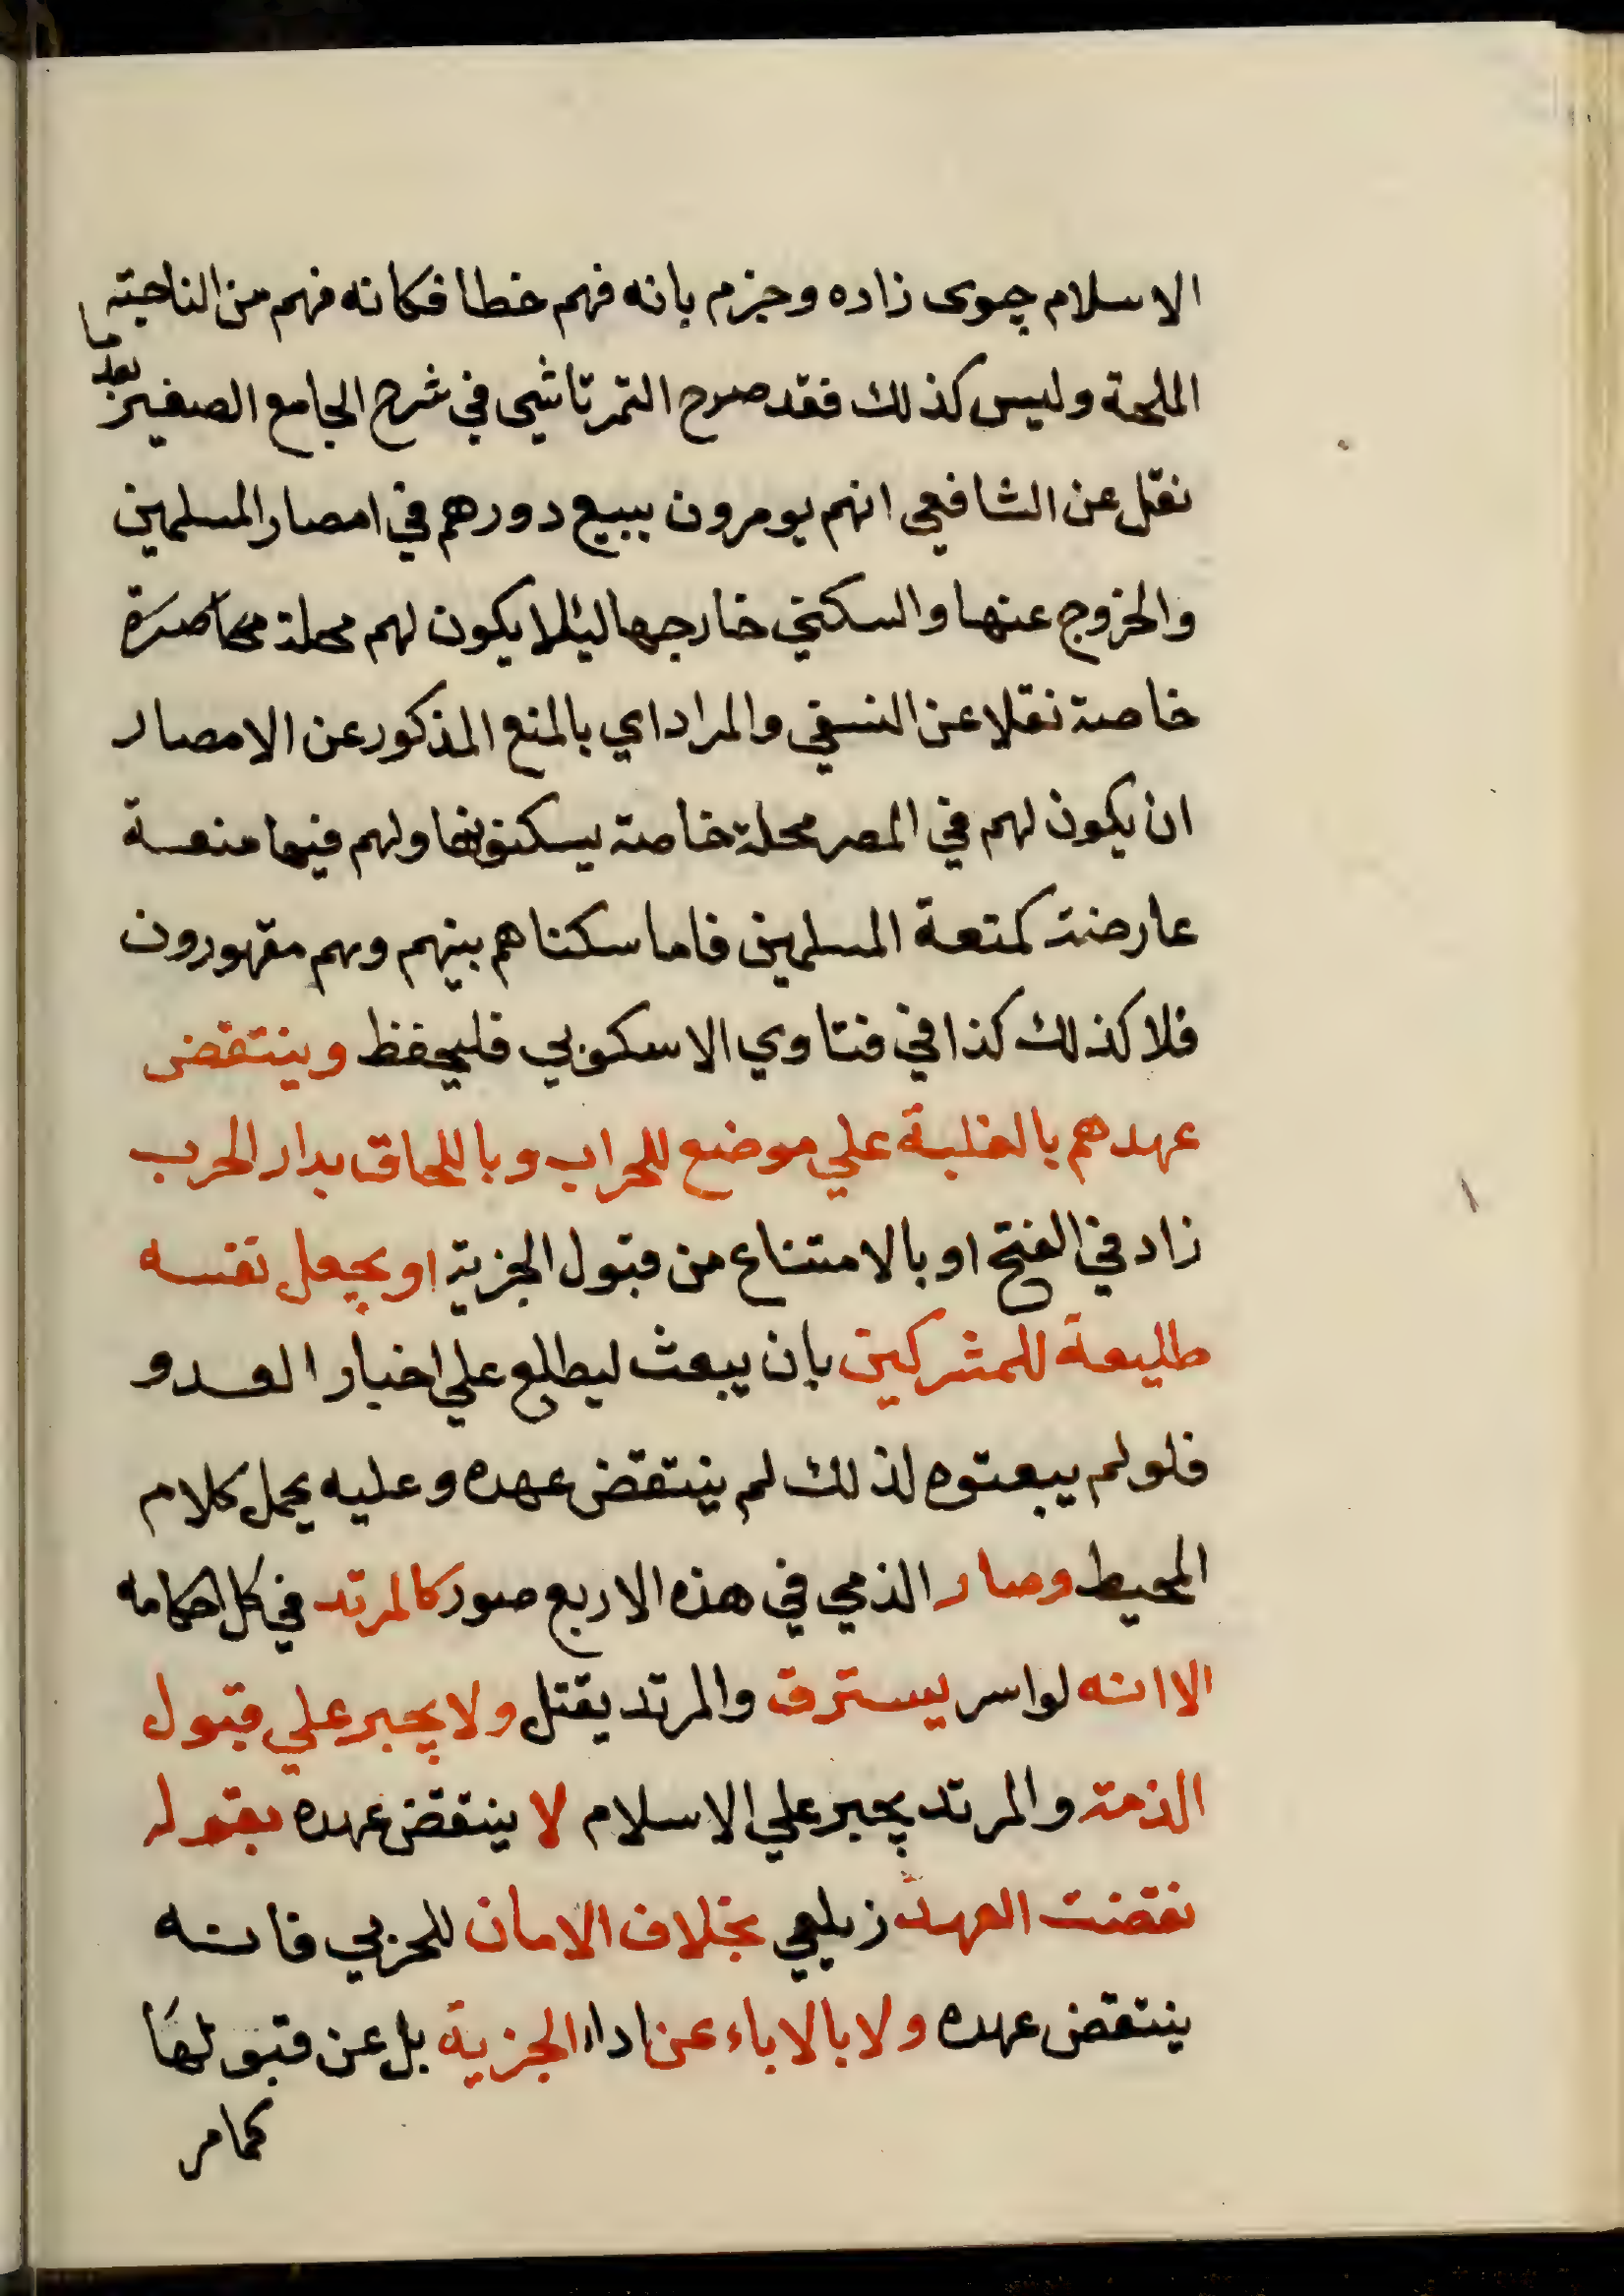 الاسلام چوى زاده وجزم بانه فهم خطا فكانه فهم من الناحية
الملحة وليس كذلك فقد صرح التمرتاشي في شرح الجامع الصغير بعد ما
نقل عن الشافعي انهم يومرون ببيع دورهم في امصار المسلمين
والخروج عنها والسكني خارجها ليلا يكون لهم محلة محاصرة
خاصة نقلا عن النسفي والمراد اي بالمنع المذكور عن الامصار
ان يكون لهم في المصر محلة خاصة يسكنونها ولهم فيها منعة
عارضة كمتعة المسلمين فاما سكناهم بينهم وهم مقهورون
فلا كذلك كذا في فتاوي الاسكوبي فليحفظ وينتقض
عهدهم بالغلبة علي موضع للحراب وباللحاق بدار الحرب
زاد في الفتح او بالامتناع من قبول الجزية او يجعل نفسه
طليعة للمشركين بان يبعث ليطلع علي اخبار العدو
فلو لم يبعثوه لذلك لم ينتقض عهده وعليه يحمل كلام
المحيط وصار الذمي في هذه الاربع صور كالمرتد في كل احكامه
الا انه لو اسر يسترق والمرتد يقتل ولا يجبر علي قبول
الذمة والمرتد يجبر علي الاسلام لا ينتقض عهده بقوله
نقضت العهد زيلعي بخلاف الامان للحربي فانه
ينتقض عهده ولا بالاباء عن اداء الجزية بل عن قبولها
كمامر